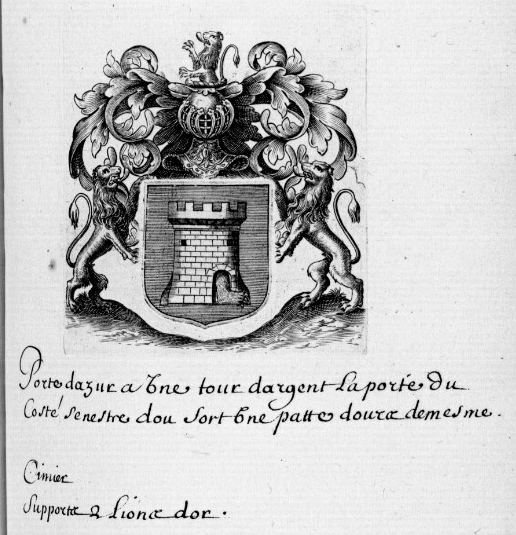 Porte dazur a bne tour dargent La porte du
Costé senestre dou sort bne patte dource demesme.
Cimier
Supportæ 2 lionæ dor.